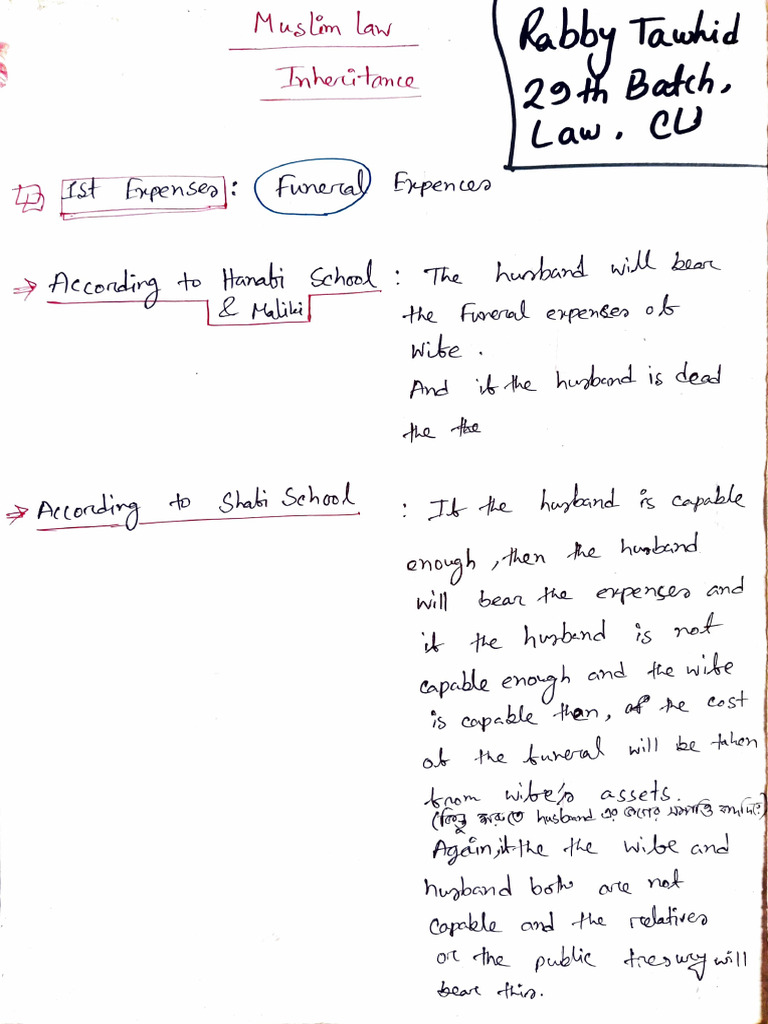 Muslim Law
Inheritance
Rabby Tawhid
29th Batch,
Law. CU
1st Expenses : Funeral Expences
⇒ According to Hanafi School : The husband will bear
& Maliki
the Funeral expenses of
wife.
And if the husband is dead
the the
⇒ According to Shafi School : If the husband is capable
enough, then the husband
will bear the expenses and
if the husband is not
capable enough and the wife
is capable then, of the cost
of the funeral will be taken
from wife's assets.
(কিন্তু husband এর
Again, if the the wife and
husband both are not
capable and the relatives
or the public tresury will
bear this.